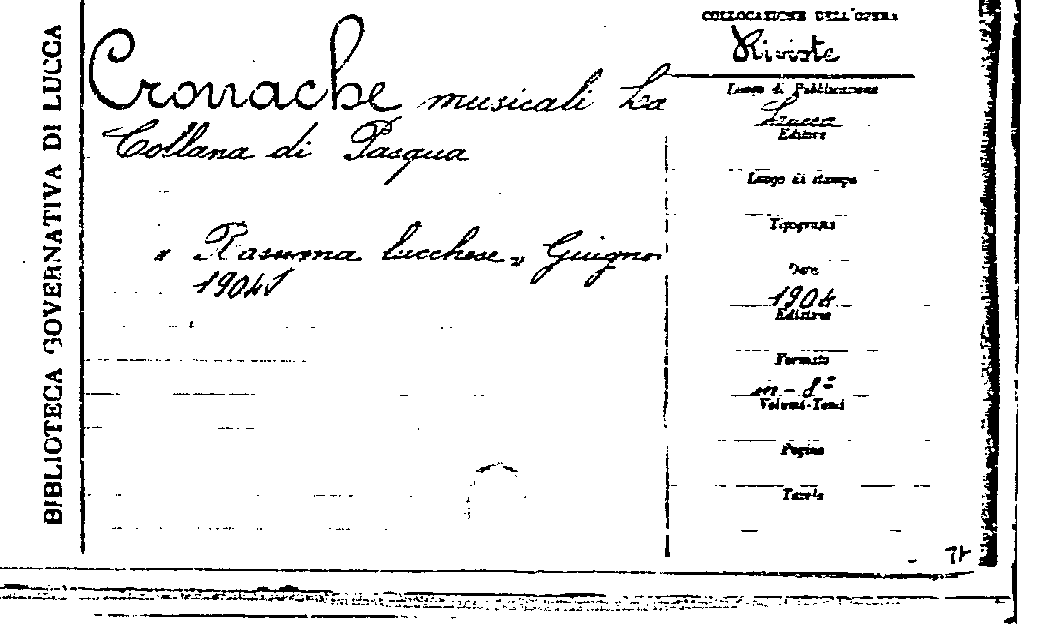 BIBLIOTECA GOVERNATIVA DI LUCCA
Cronache musicali La
Collana di Pasqua
« Rassegna lucchese » Giugno
1904
COLLOCAZIONE DELL'OPERA
Riviste
Luogo di Pubblicazione
Lucca
Editore
Luogo di stampa
Tipografia
Data
1904
Edizione
Formato
in-8°
Volumi-Tomi
Pagine
Tavole